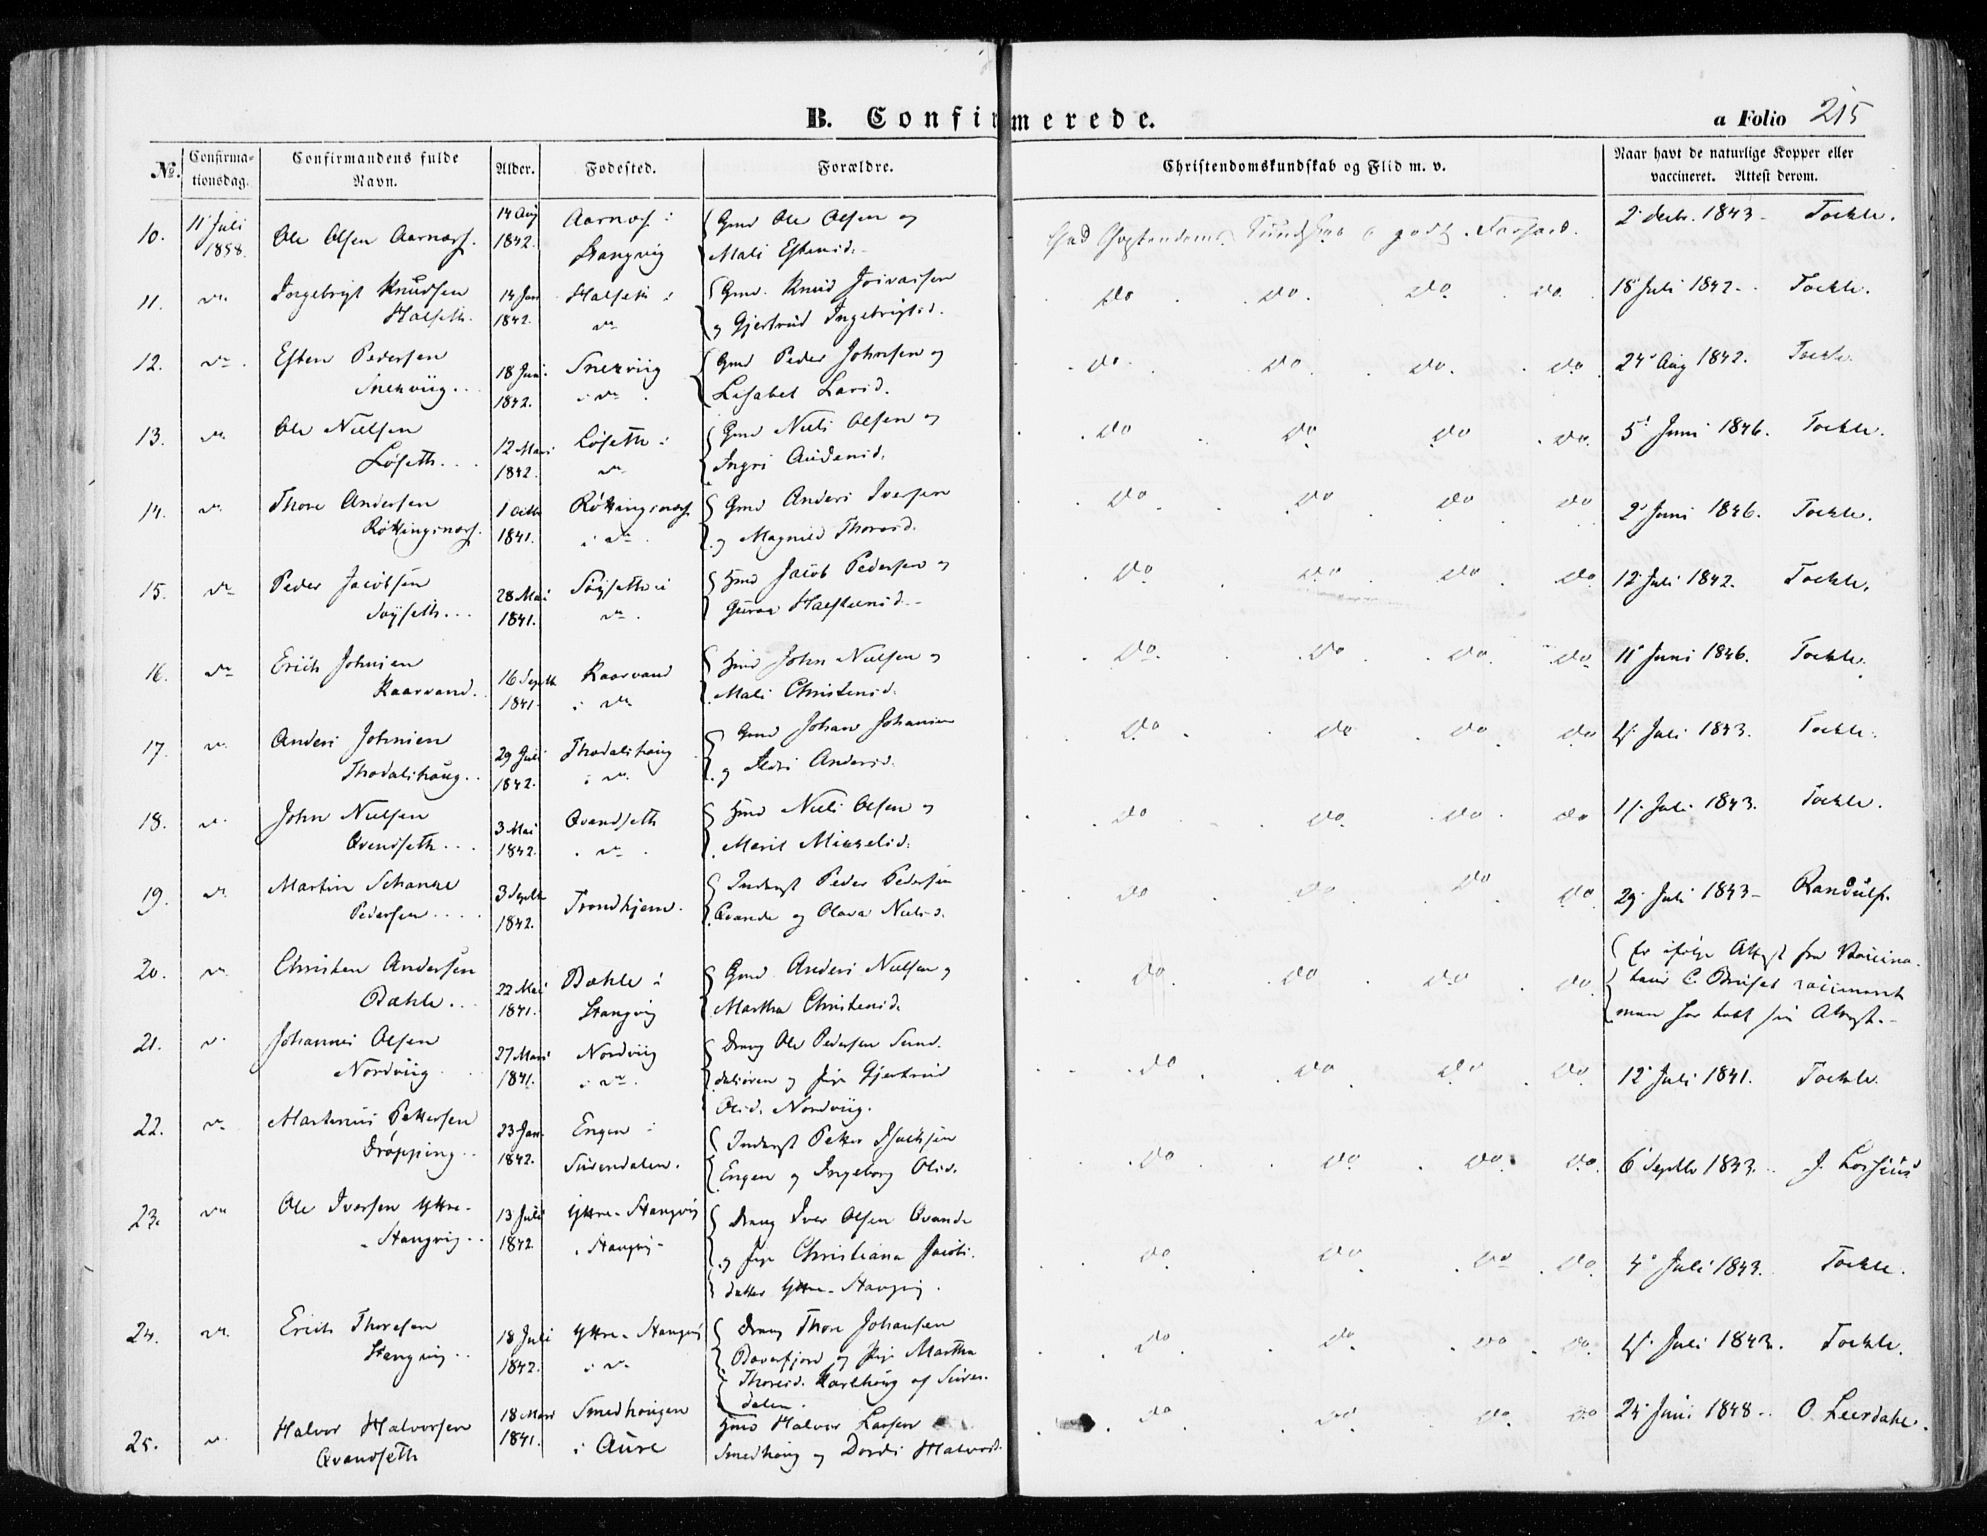 B. Confirmerede.
a Folio 215
No. Confirma-tionsdag. Confirmandens fulde Navn. Alder. Fødested. Forældre. Christendomskundskab og Flid m. v. Naar havt de naturlige Kopper eller vaccineret. Attest derom.
10. 11 Juli 1858. Ole Olsen Aarnæs. 14 Aug 1842. Aarnæs i Stangvig Gmd Ole Olsen og Mali Estensd. 1843 Toehle.
11. do Ingebrigt Knudsen Halseth. 14 Jan 1842. Halseth i do Gmd. Knud og Gjertrud Ingebrigtsd. do do. do. do. 18 Juli 1842. Toehle.
12. do. Esten Pedersen Snekviig. 18 Juni 1842. Snekviig i do Gmd Peder Johnsen og Lisabet Larsd. do. do. do. do. 24 Aug 1842. Toehle
13. do Ole Nielsen Løseth. 12 Mars 1842. Løseth i do Gmd Niels Olsen og Ingri do do do do. 5 Juni 1846. Toehle.
14. do Thore Andersen Røkkingsnæs. 1 Octb 1841. Røkkingsnæs i do. Gmd Anders Iversen og Magnild Thoresd. do do do do 2 Juni 1846. Toehle.
15. do Peder Jacobsen Søyseth. 28 Mai 1841. Søyseth i do. Hmd Jacob Pedersen og Guroe Halstensd. do do do do 12 Juli 1842. Toehle.
16. do Erich Johnsen Kaarvand. 16 Septb 1841. Kaarvand i do Hmd John Nielsen og Mali Christensd. do. do do. do 11 Juni 1846. Toehle.
17. do Anders Johnsen Thodalshoug. 29 Juli 1842. Thodalshoug i do. Gmd Johan Johansen og Andersd. do. do do do Juli 1843. Toehle.
18. do John Nielsen Qvendseth. 3 Mai 1842. Qvendseth do Hmd Niels Olsen og Marit Mikkelsd. do do. do. do Juli 1843. Toehle.
19. do Martin Schanke Pedersen 3 Septb 1842. Trondhjem. Inderst Peder Pedersen Qvande og Olava Nielsd. do do do do. 29 Juli 1843 Randulf.
20. do Christen Andersen Bæhle. 22 Mai 1841. Bæhle i Stangvig Gmd. Anders Nielsen og Martha Christensd. do do do. do. Er ifølge Attest fra C. vaccineret men har tabt sin Attest.
21. do Johannes Olsen Nordviig 27 Mars 1841. Nordviig i do. Drang Ole Pedersen Sunddalsøren og Pige Gjertrud Olsd. Nordviig. do do do do. 12 Juli 1841. Toehle.
22. do Martinus Pettersen Drøpping. 23 Jan. 1842. Engen i Surendalen. Inderst Petter Isachsen Engen og Ingeborg Olsd. do do. do. do. 6 Septb 1843. J. Lossius
23. do Ole Iversen Yttre-Stangvig. 13 Juli 1842 Yttre-Stangvig Stangvig Drang Iver Olsen Qvande og Pige Christiana Jacobsdatter Yttre-Stangvig. do do do do. 4 Juli 1843. Toehle.
24. do. Erich Thoresen Stangvig. 18 Juli 1842. Yttre-Stangvig i do Drang Thore Johansen Bæverfjord og Pige Martha Thoresd. Karlhoug af Surendalen. do do. do do. Juli 1843. Toehle.
25. do Halvor Halvorsen Qvandseth 18 Mars 1841. Smedhougen i Aure Hmd Halvor Larsen Smedhoug og Dordi Halvorsd. do do do do 24 Juni 1848. O. Leerdahl.